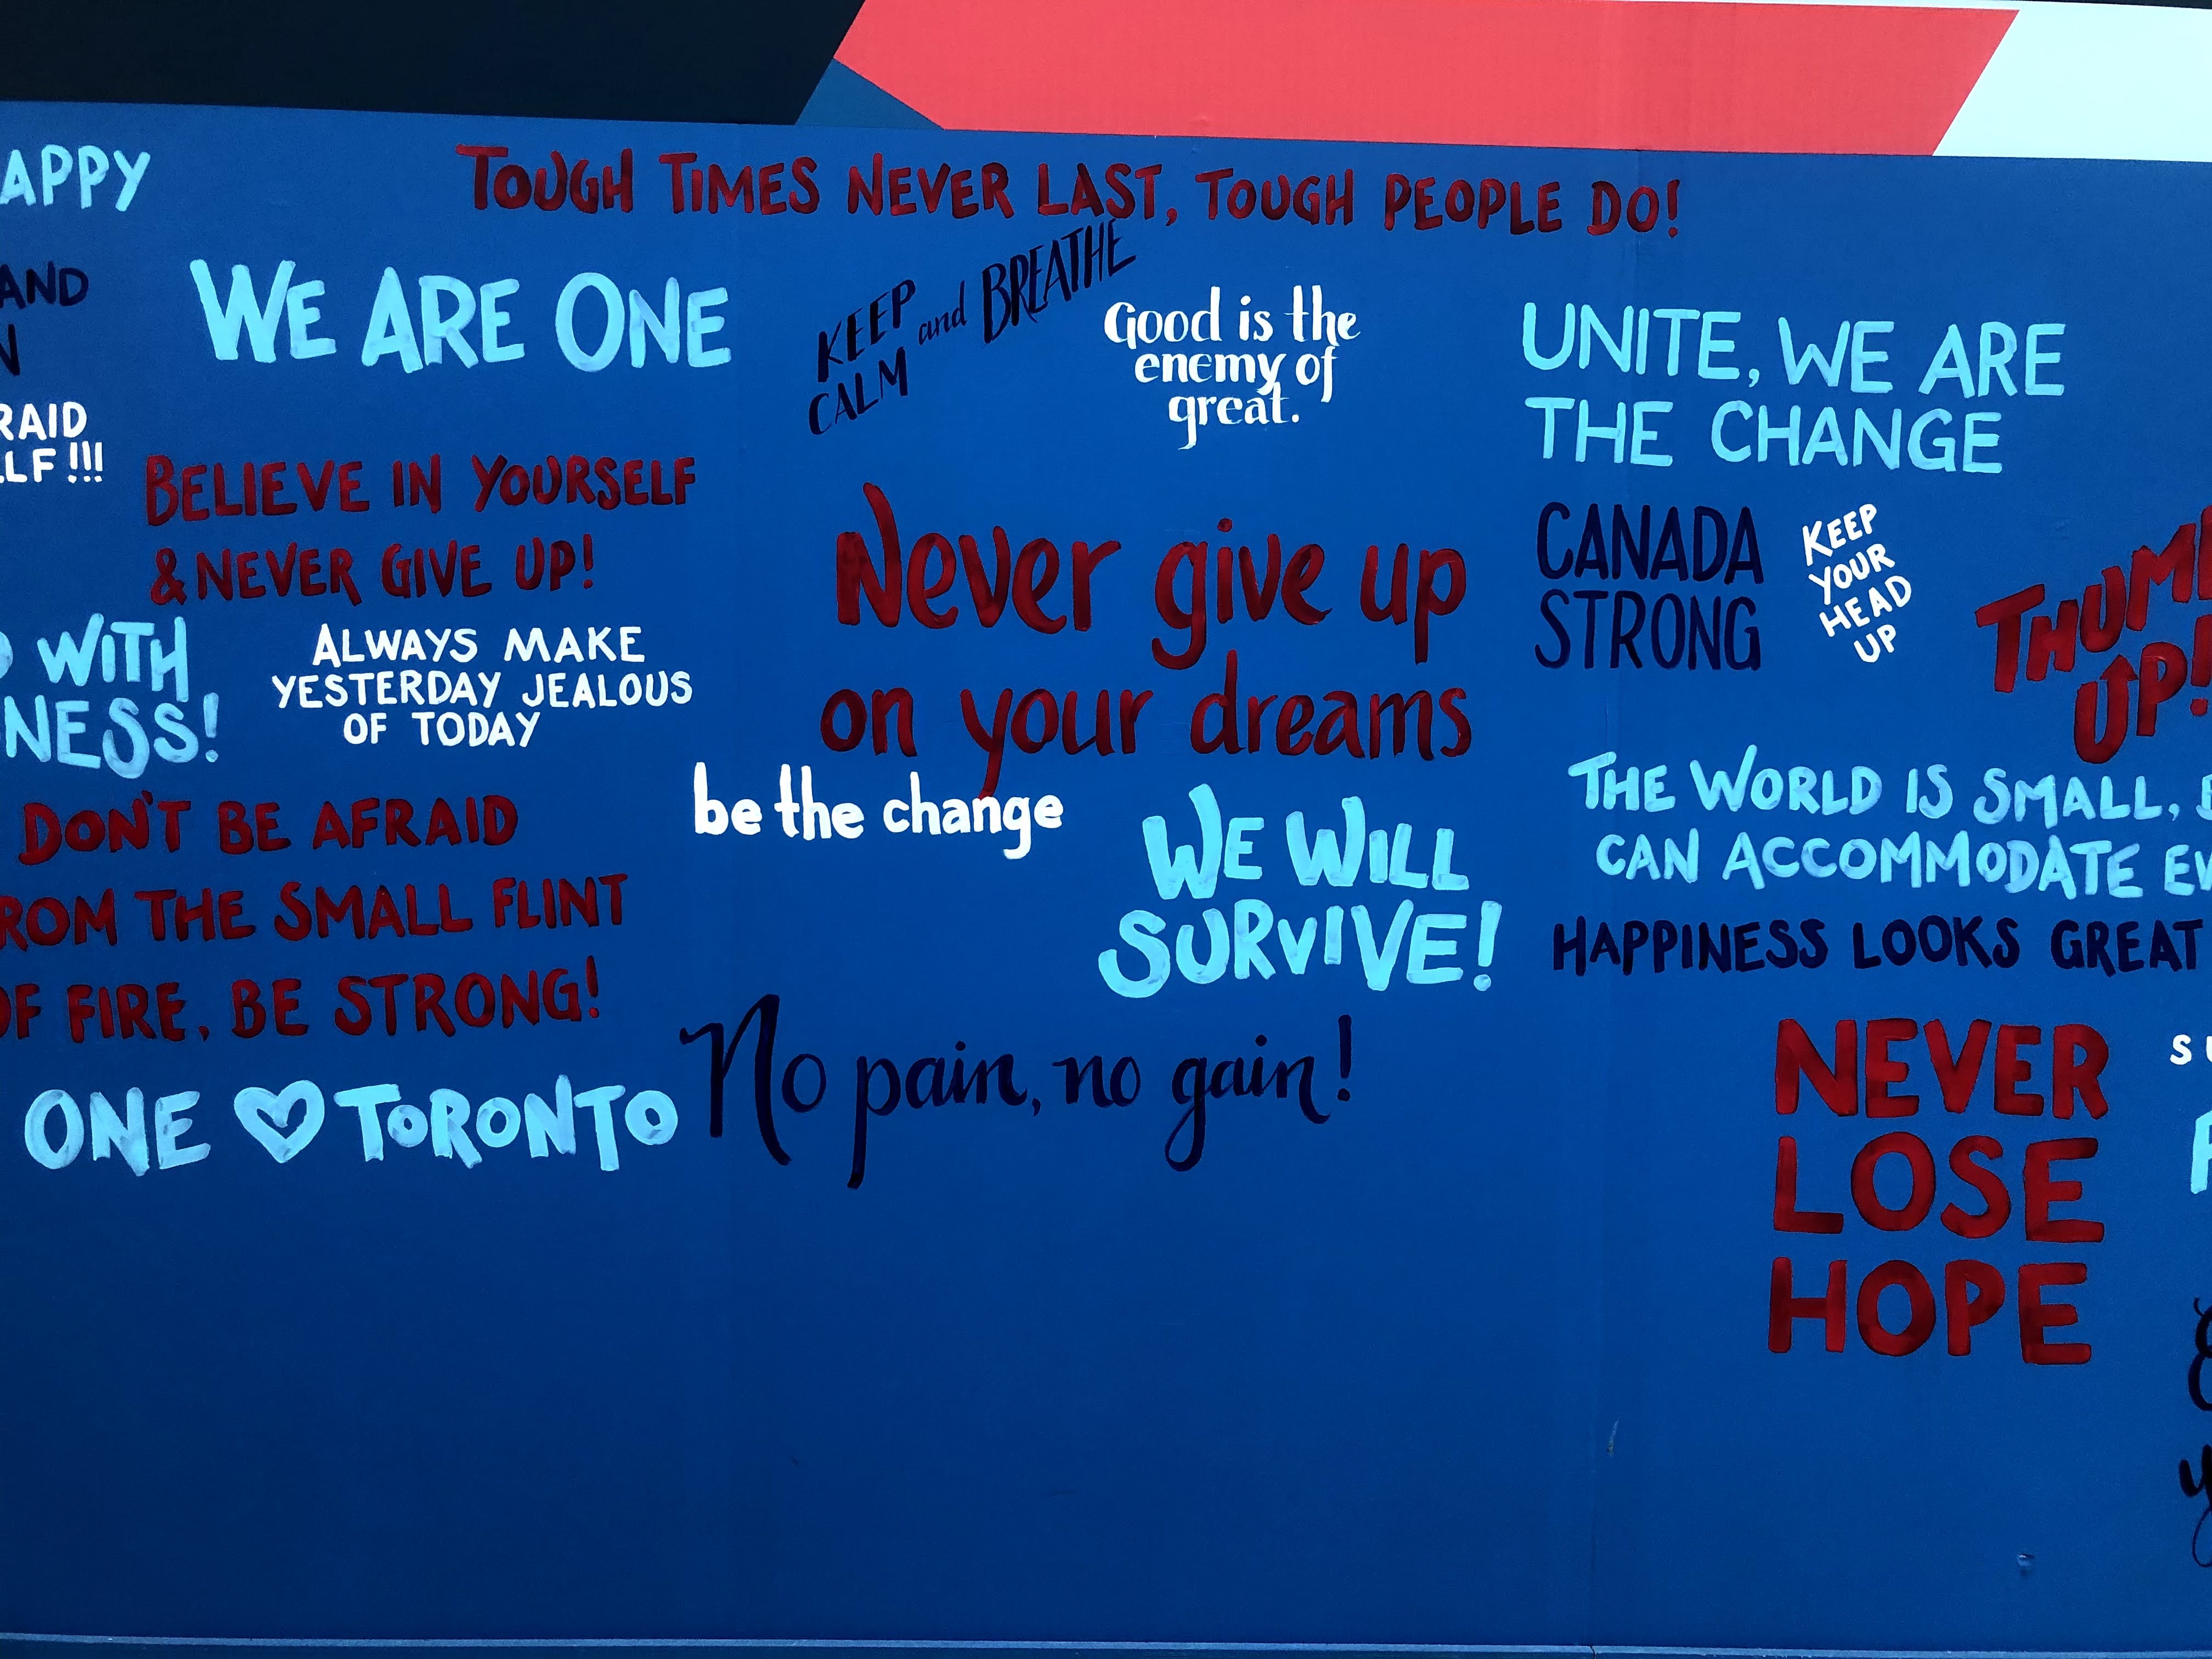 TOUGH TIMES NEVER LAST, TOUGH PEOPLE DO!
WE ARE ONE
KEEP
CALM
and BREATHE
Good is the
enemy of
great.
UNITE, WE ARE
THE CHANGE
AND
BELIEVE IN YOURSELF
& NEVER GIVE UP!
Never give up
on your dreams
CANADA
STRONG
KEEP
YOUR
HEAD
UP
UP!
WITH
ALWAYS MAKE
YESTERDAY JEALOUS
OF TODAY
be the change
WE WILL
SURVIVE!
THE WORLD IS SMALL,
CAN ACCOMMODATE
HAPPINESS LOOKS GREAT
DON'T BE AFRAID
THE SMALL FLINT
OF FIRE, BE STRONG!
ONE ♡ TORONTO
No pain, no gain!
NEVER
LOSE
HOPE